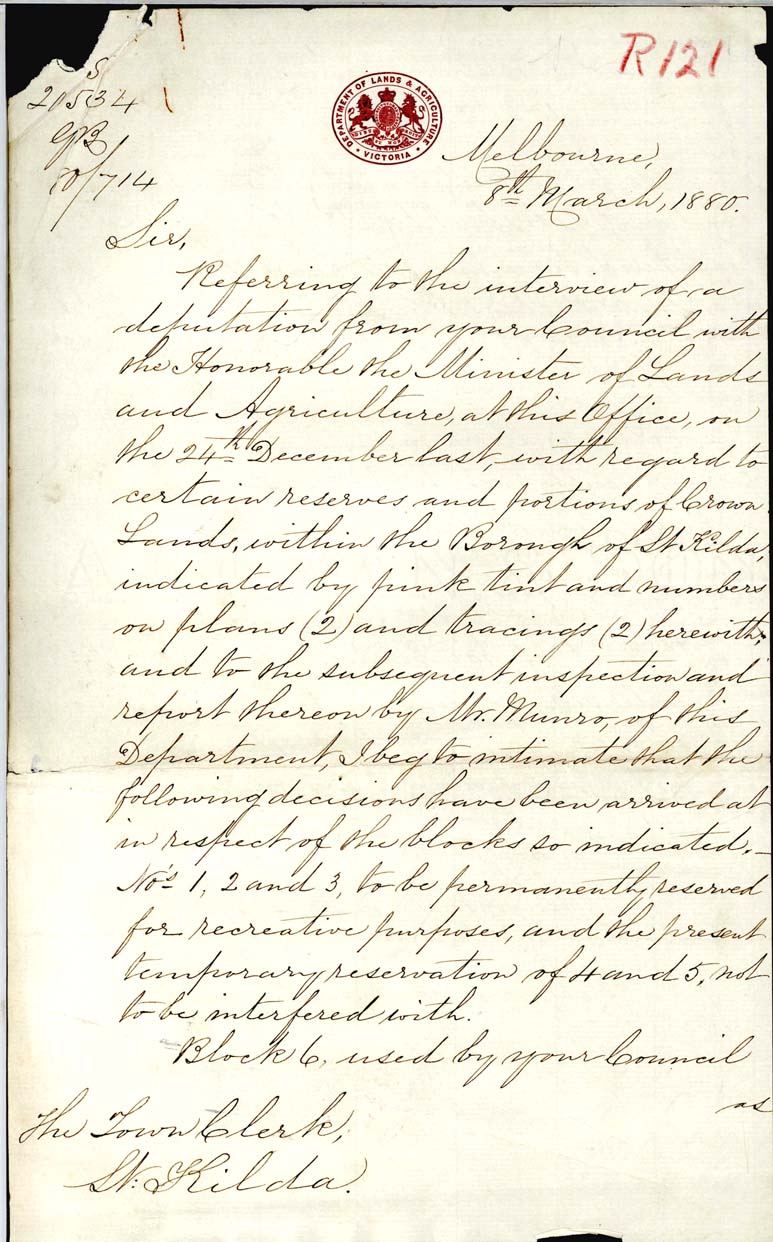 R121
S
21534
GB
80/714
DEPARTMENT OF LANDS & AGRICULTURE
VICTORIA
Melbourne,
8th March, 1880.
Sir,
Referring to the interview of a
deputation from your Council with
the Honorable the Minister of Lands
and Agriculture, at this Office, on
the 24th December last, with regard to
certain reserves and portions of Crown
Lands, within the Borough of St Kilda,
indicated by pink tint and numbers
on plans (2) and tracings (2) herewith;
and to the subsequent inspection and
report thereon by Mr. Munro, of this
Department, I beg to intimate that the
following decisions have been arrived at
in respect of the blocks so indicated. —
No's 1, 2 and 3, to be permanently reserved
for recreative purposes, and the present
temporary reservation of 4 and 5, not
to be interfered with.
Block 6, used by your Council
as
The Town Clerk,
St: Kilda.